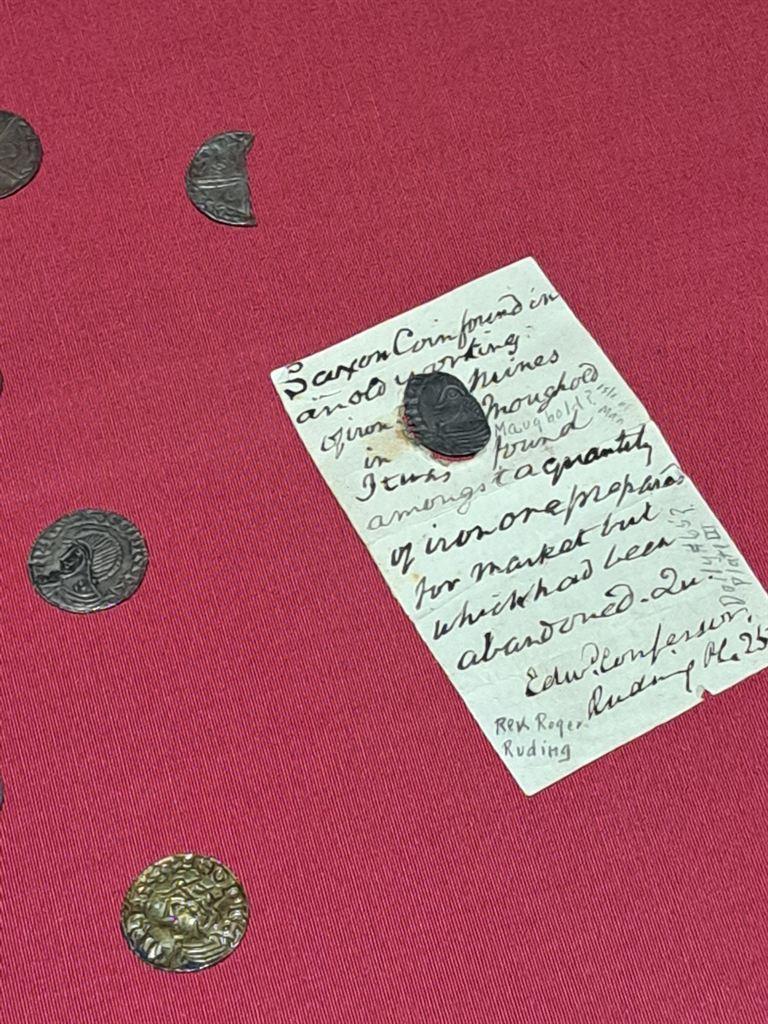 Saxon Coin found in
an old working:
of iron Mines
in Moughold
Maughold? Isle of
Man
It was found
amongst a quantity
of iron ore prepared
for market but
which had been
abandoned. Qu.
Edwd. Confessor.
Ruding Pl. 25
Rev Roger
Ruding